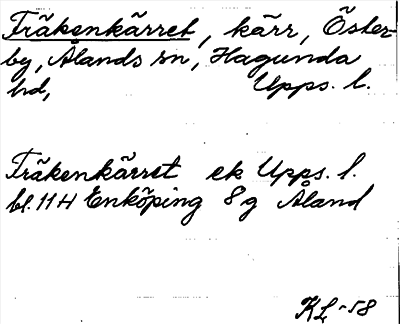 Träkenkärret, kärr, Öster-
by, Ålands sn, Hagunda
hd, Upps. l.
Träkenkärret ek Upps. l.
bl. 11 H Enköping 8 g Åland
KL -58